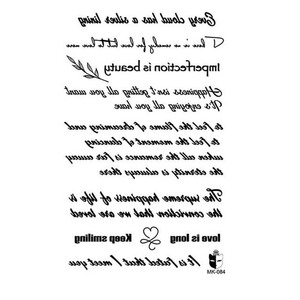 Every cloud has a silver lining
There is no remedy for love but to love more
Imperfection is beauty
Happiness isn't getting all you want
It's enjoying all you have.
to feel the flame of dreaming and
to feel the moment of dancing
when all the romance is far away
the eternity is always there
The supreme happiness of life is
the conviction that we are loved
love is long Keep smiling
It is fated that I meet you
MK-084